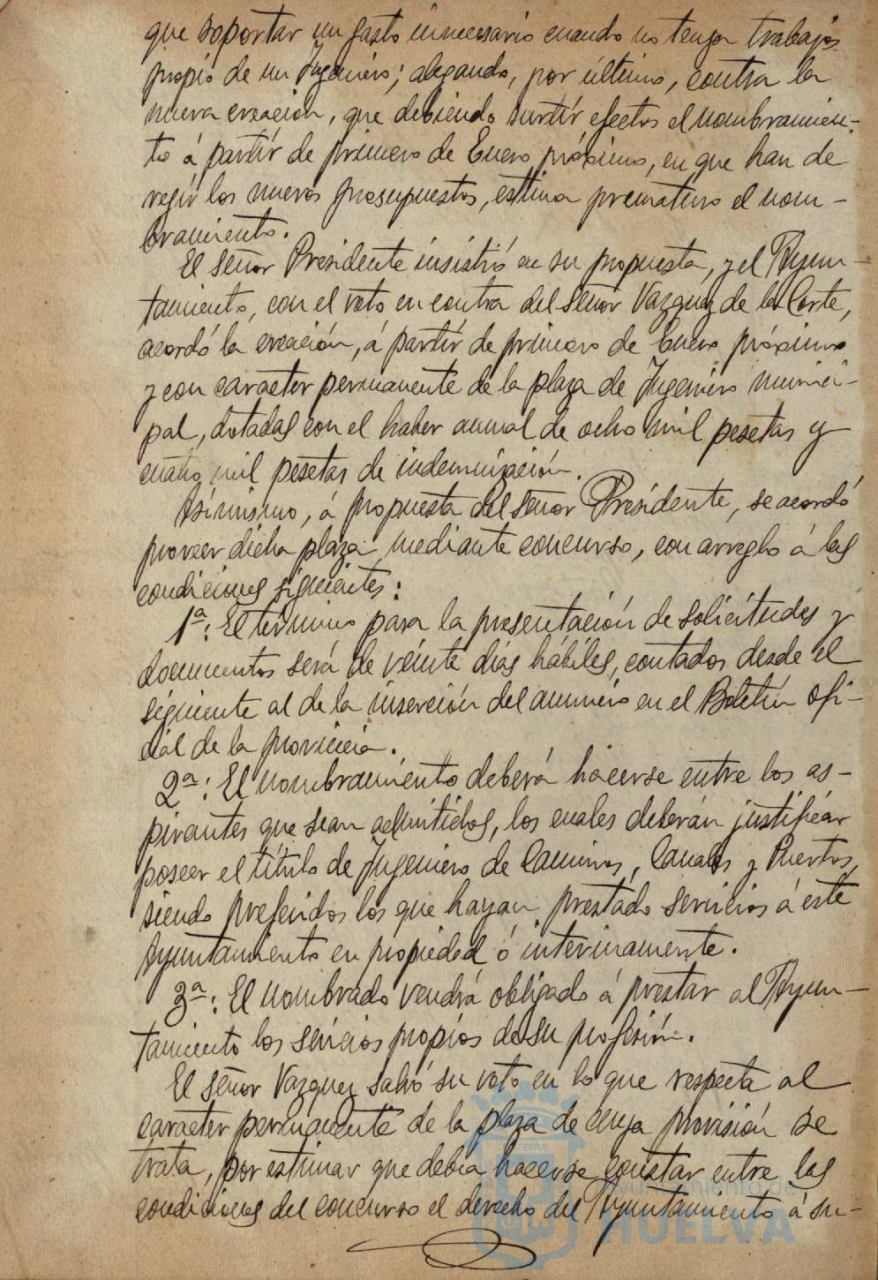 que soportar un gasto innecesario cuando no tenga trabajos
propio de un Ingeniero; alegando, por último, contra la
nueva creación, que debiendo surtir efectos el nombramien-
to á partir de primero de Enero próximo, en que han de
regir los nuevos presupuestos, estima prematuro el nom-
bramiento.
El señor Presidente insistió en su propuesta, y el Ayun-
tamiento, con el voto en contra del señor Vazquez de la Corte,
acordó la creación, á partir de primero de Enero próximo
y con caracter permanente de la plaza de Ingeniero munici-
pal, dotadas con el haber anual de ocho mil pesetas y
cuatro mil pesetas de indemnización.
Asimismo, á propuesta del señor Presidente, se acordó
proveer dicha plaza, mediante concurso, con arreglo á las
condiciones siguientes:
1ª: El termino para la presentación de solicitudes y
documentos será de veinte días hábiles, contados desde el
siguiente al de la inserción del anuncio en el Boletín ofi-
cial de la provincia.
2ª: El nombramiento deberá hacerse entre los as-
pirantes que sean admitidos, los cuales deberán justificar
poseer el título de Ingeniero de Caminos, Canales y Puertos,
siendo preferidos los que hayan prestado servicios á este
Ayuntamiento en propiedad ó interinamente.
3ª: El nombrado vendrá obligado á prestar al Ayun-
tamiento los servicios propios de su profesión.
El señor Vazquez salvó su voto en lo que respecta al
caracter permanente de la plaza de cuya provisión se
trata, por estimar que debía hacerse constar entre las
condiciones del concurso el derecho del Ayuntamiento á su-
HUELVA